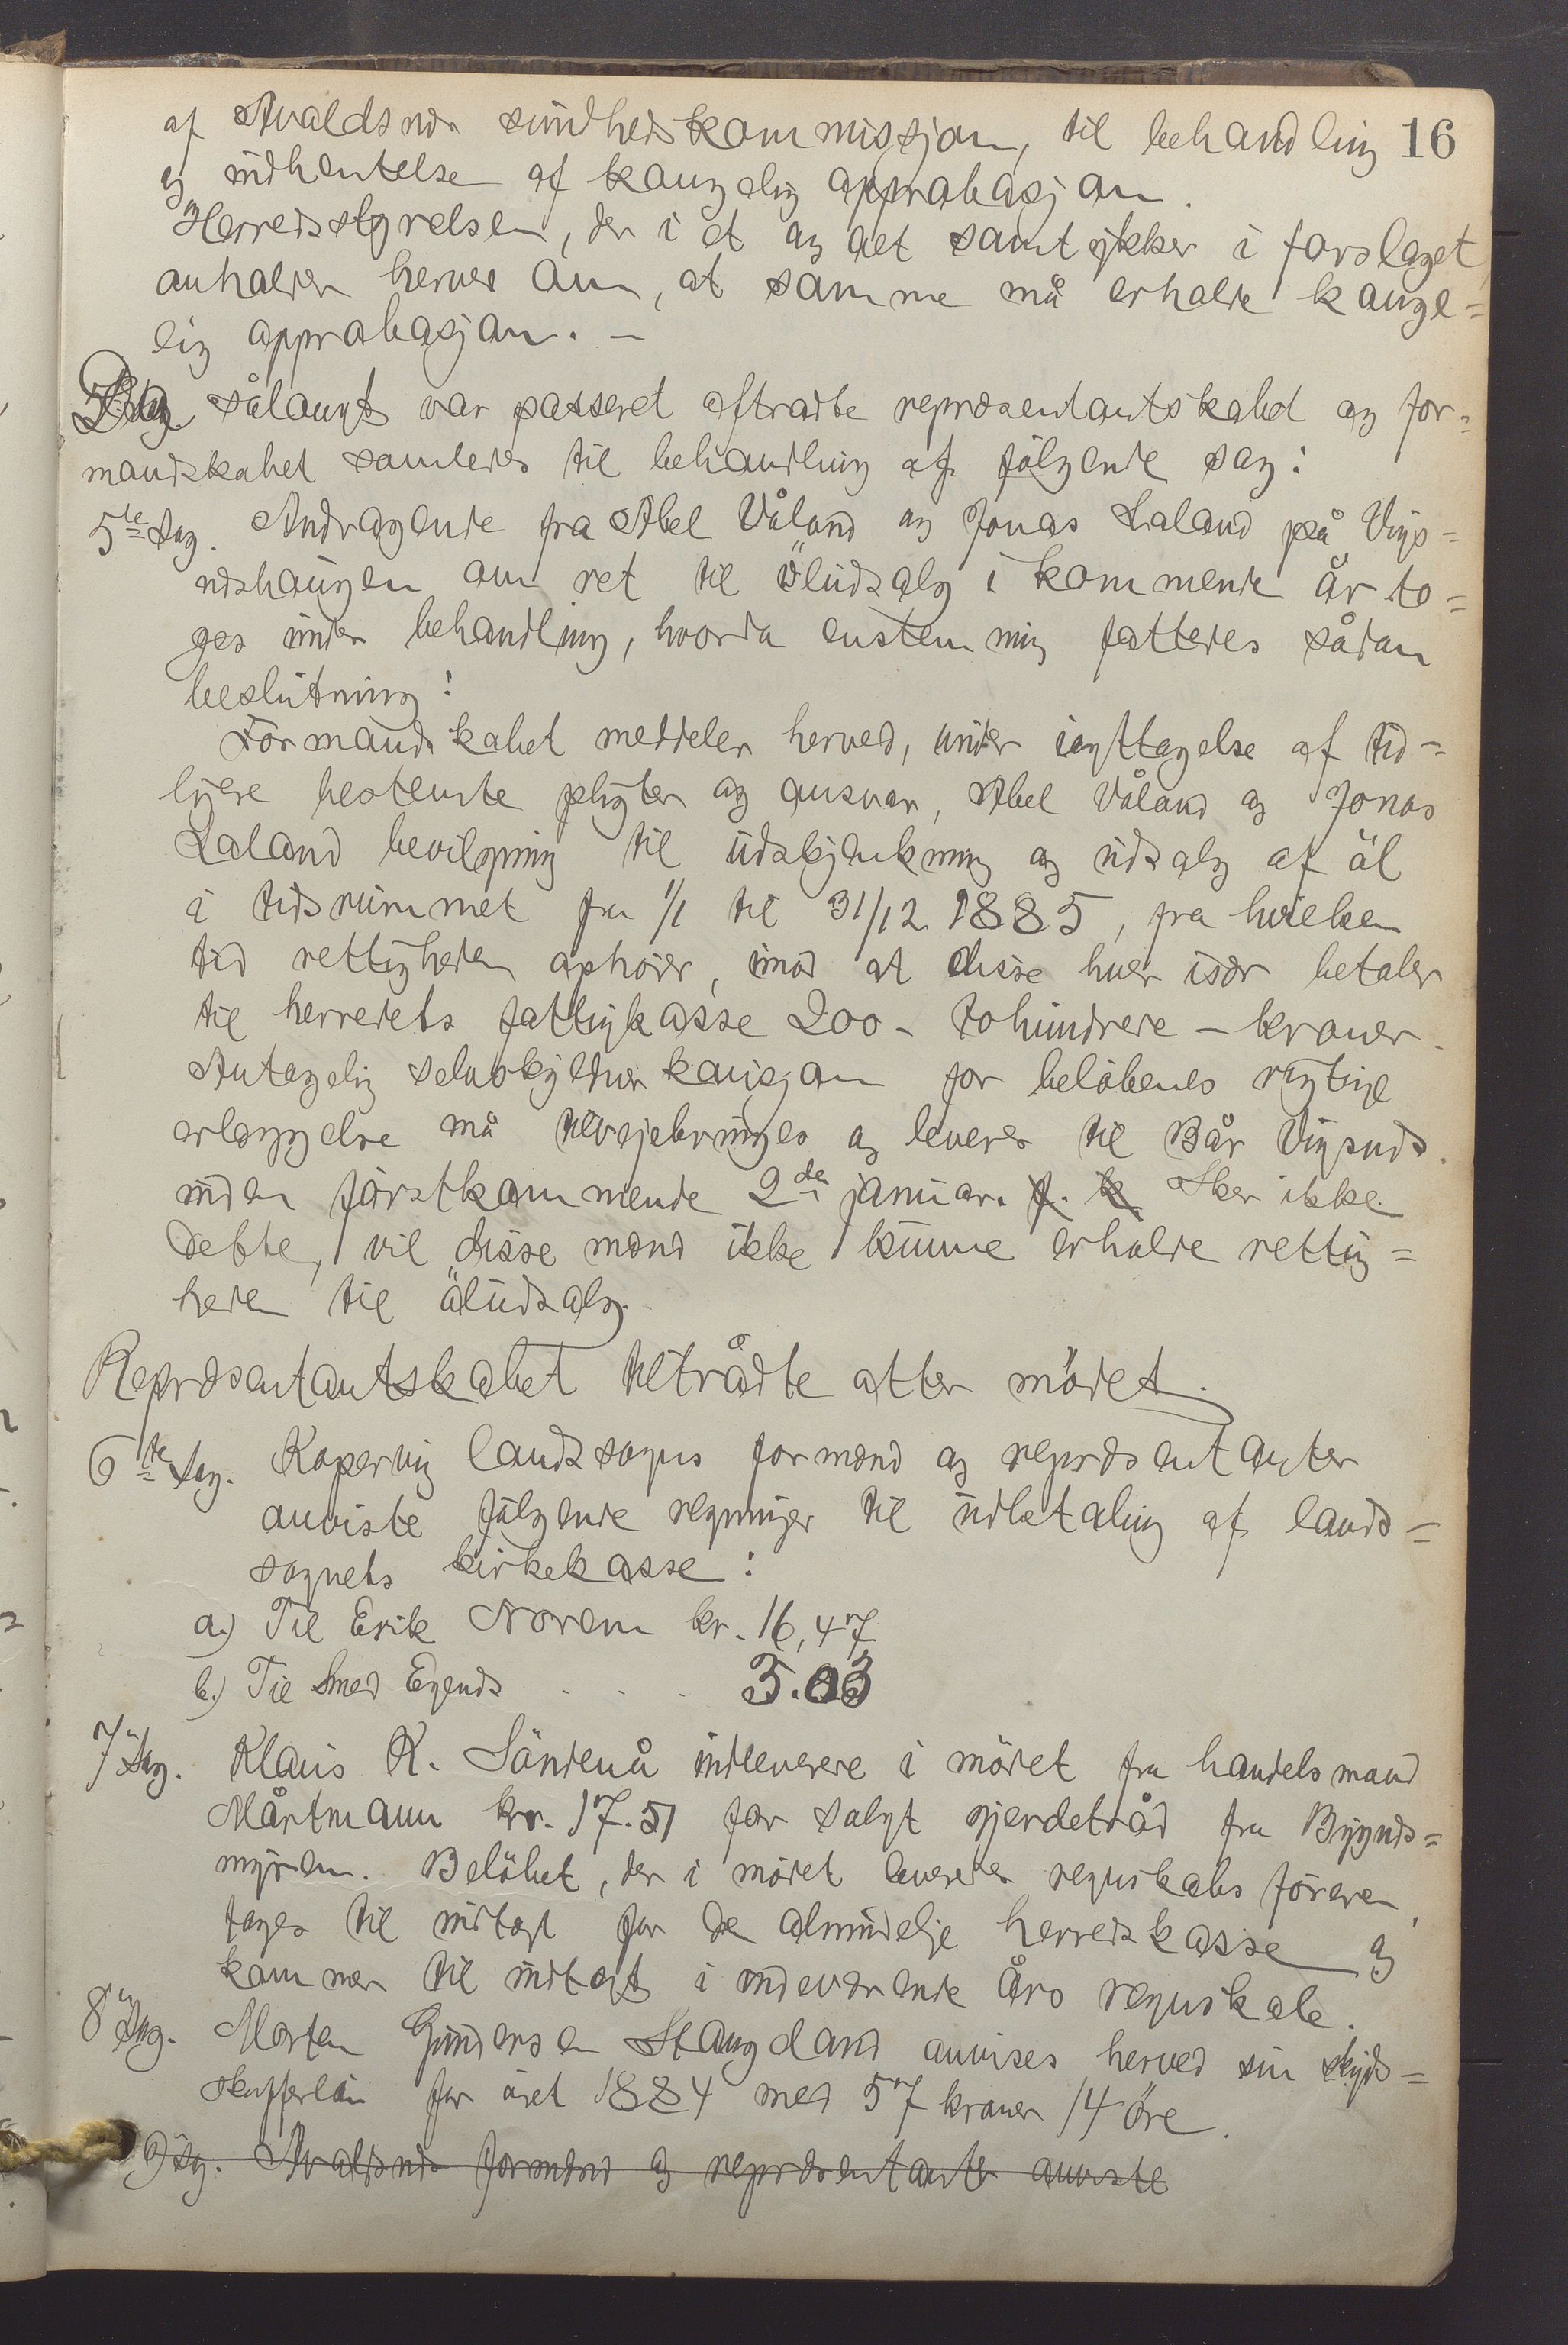 af Avaldsnds sundhedskommissjon, til behandling 16
og indhentelse af kongelig approbasjon.
Herredsstyrelsen, der i et og alt samtykker i forslaget,
anholder herved om, at samme må erholde konge-
lig approbasjon. –
Da sålangt var passeret aftrådte repræsentantskabet og for-
mandskabet samledes til behandling af følgende sag:
5te Sag. Andragende fra Abel Våland og Jonas Laland på Vigs-
ndshaugen om ret til öludsalg i kommende år to-
ges under behandling, hvorda enstemmig fattedes sådan
beslutning:
Formandskabet meddeler herved, under iagttagelse af tid-
ligere bestemte pligter og ansvar, Abel Våland og Jonas
Laland bevilgning til udskjenkning og udsalg af öl
i tidsrummet fra 1/1 til 31/12 1885, fra hvilken
tid rettigheden ophører, imod at disse hver især betaler
til herredets fattigkasse 200 – tohundrede – kroner.
Antagelig selvskyldner kausjon for beløbenes rigtige
erlæggelse må tilvejebringes og leveres til Bår Vigsnds
inden førstkommende 2den januar. f. k. Sker ikke
dette, vil disse mænd ikke kunne erholde rettig-
heden til öludsalg.
Repræsentantskabet tiltrådte atter mödet.
6te Sag. Kopervig landssogns formænd og repræsentanter
anviste fölgende regninger til udbetaling af lands-
sognets kirkekasse:
a.) Til Erik Norem kr. 16,47
b.) Til Smed Egends . . . 3.03
7 Sag. Klaus K. Söndenå indleverede i mödet fra handelsmand
Mårtmann kr. 17.51 for solgt gjerdetråd fra Bygnds-
myren. Belöbet, der i mödet leveredes regnskabsföreren,
tages til indtægt for den almindelige herredskasse og
kommer til indtægt i indeværende års regnskab.
8 Sag. Morten Gundersen Stangeland anvises herved sin skyds-
skafferlön for året 1884 med 57 kroner 14 öre.
9 Sag. Avaldsnds formænd og repræsentanter anviste